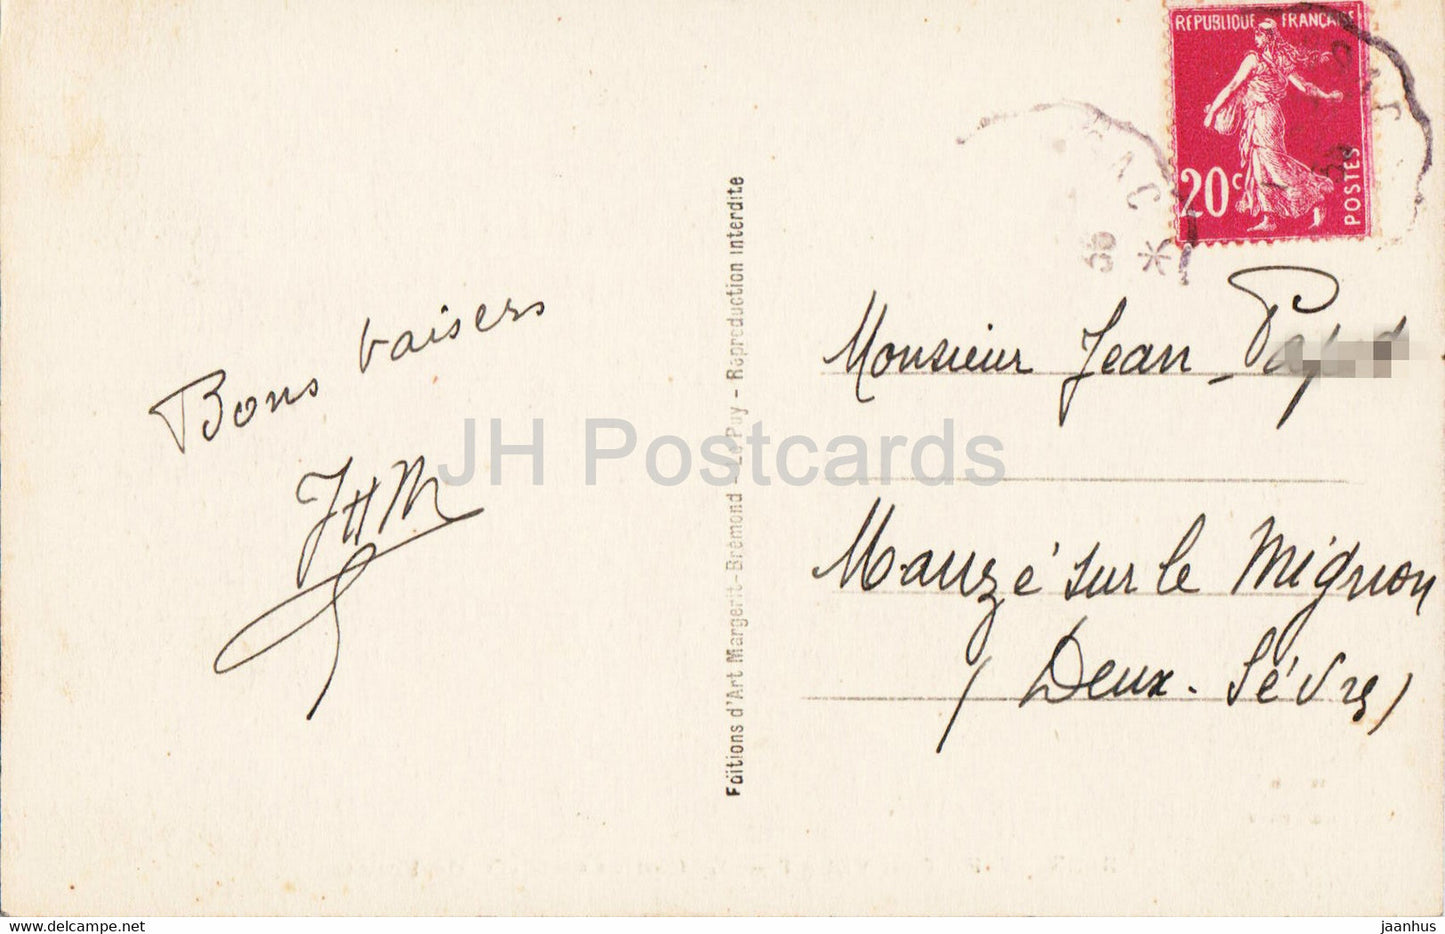 RÉPUBLIQUE FRANÇAISE
20c
POSTES
36
Bons baisers
JHM
Monsieur Jean
Mauzé sur le Mignon
(Deux-Sèvres)
Editions d'Art Margerit-Brémond - Le Puy - Reproduction interdite
JH Postcards
www.delcampe.net
jaanhus